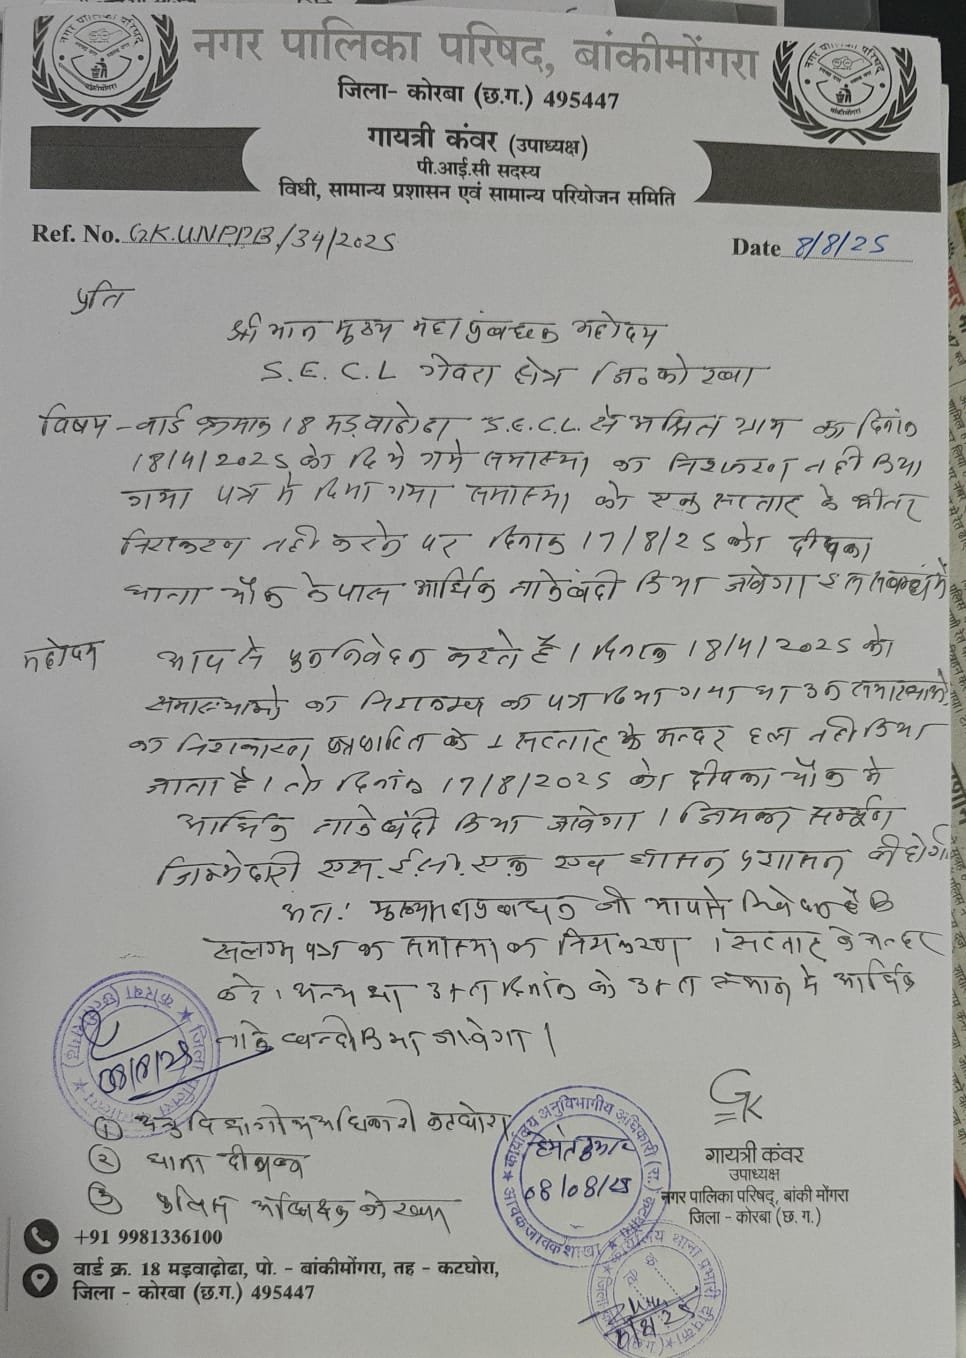 नगर पालिका परिषद, बांकीमोंगरा
जिला- कोरबा (छ.ग.) 495447
गायत्री कंवर (उपाध्यक्ष)
पी.आई.सी सदस्य
विधी, सामान्य प्रशासन एवं सामान्य परियोजन समिति
Ref. No. GK.UNPPB/34/2025
Date 8/8/25
प्रति
श्रीमान मुख्य महाप्रंबधक महोदय
S.E.C.L गेवरा क्षेत्र जि०कोरबा
विषय - वार्ड क्रमांक 18 मड़वाढोढा S.E.C.L. से ग्राम का दिनांक
18/4/2025 को दिये गये समास्या का निराकरण नही किया
गया पत्र मे दिया गया समास्या को एक सप्ताह के भीतर
निराकरण नही करने पर दिनांक 17/8/25 को दीपका
थाना चौक के पास आर्थिक नाकेबंदी किया जावेगा इस सबंध मे
महोदय आप से पुन निवेदन करते है। दिनांक 18/4/2025 को
समास्याओ का निराकरण का पत्र दिया गया था उन समास्याओ
का निराकारण 1 सप्ताह के अन्दर हल नही किया
जाता है। तो दिनांक 17/8/2025 को दीपका चौक मे
आर्थिक नाकेबंदी किया जावेगा। जिसका सम्पूर्ण
जिम्मेदारी एस.ई.सी.एल एवं शासन प्रशासन की होगी
अतः मुख्यमहाप्रबंधक जी आपसे निवेदन है कि
सलग्न पत्र का समास्या का निराकरण 1 सप्ताह के अन्दर
करे। अन्यथा उक्त दिनांक को उक्त स्थान मे आर्थिक
नाके बन्दी किया जावेगा।
08/8/25
① अनुविभागीय अधिकारी कटघोरा
② थाना दीपका
③ पुलिस अधिक्षक कोरबा
कार्यालय अनुविभागीय अधिकारी (रा.) कटघोरा
आवक जावक शाखा
हेमंत कुमार
08/08/25
GK
गायत्री कंवर
उपाध्यक्ष
नगर पालिका परिषद्, बांकी मोंगरा
जिला - कोरबा (छ. ग.)
+91 9981336100
वार्ड क्र. 18 मड़वाढ़ोढा, पो. - बांकीमोंगरा, तह - कटघोरा,
जिला - कोरबा (छ.ग.) 495447